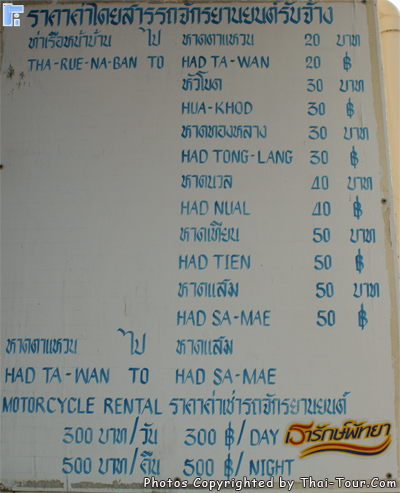 ราคาค่าโดยสารรถจักรยานยนต์รับจ้าง
ท่าเรือหน้าบ้าน ไป หาดตาแหวน 20 บาท
THA-RUE-NA-BAN TO HAD TA-WAN 20 ฿
หัวโขด 30 บาท
HUA-KHOD 30 ฿
หาดทองหลาง 30 บาท
HAD TONG-LANG 30 ฿
หาดนวล 40 บาท
HAD NUAL 40 ฿
หาดเทียน 50 บาท
HAD TIEN 50 ฿
หาดแสม 50 บาท
HAD SA-MAE 50 ฿
หาดตาแหวน ไป หาดแสม
HAD TA-WAN TO HAD SA-MAE
MOTORCYCLE RENTAL ราคาค่าเช่ารถจักรยานยนต์
300 บาท/วัน 300 ฿/DAY
เรารักษ์พัทยา
500 บาท/คืน 500 ฿/NIGHT
Photos Copyrighted by Thai-Tour.Com